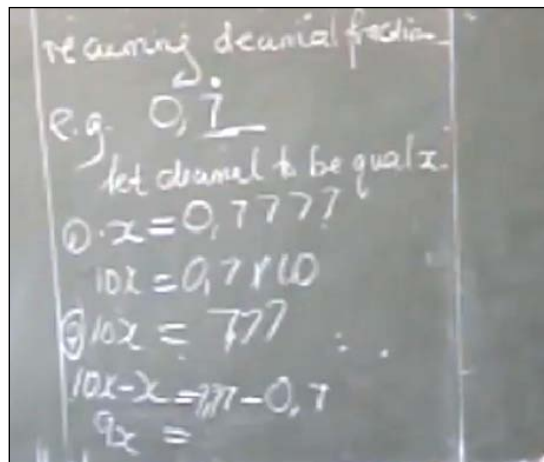 recurring decimal fraction
e.g. 0,7̇
let decimal to be equal x.
① . x = 0,7777
10x = 0,7 x 10
② 10x = 777
10x - x = 7,77 - 0,7
9x =